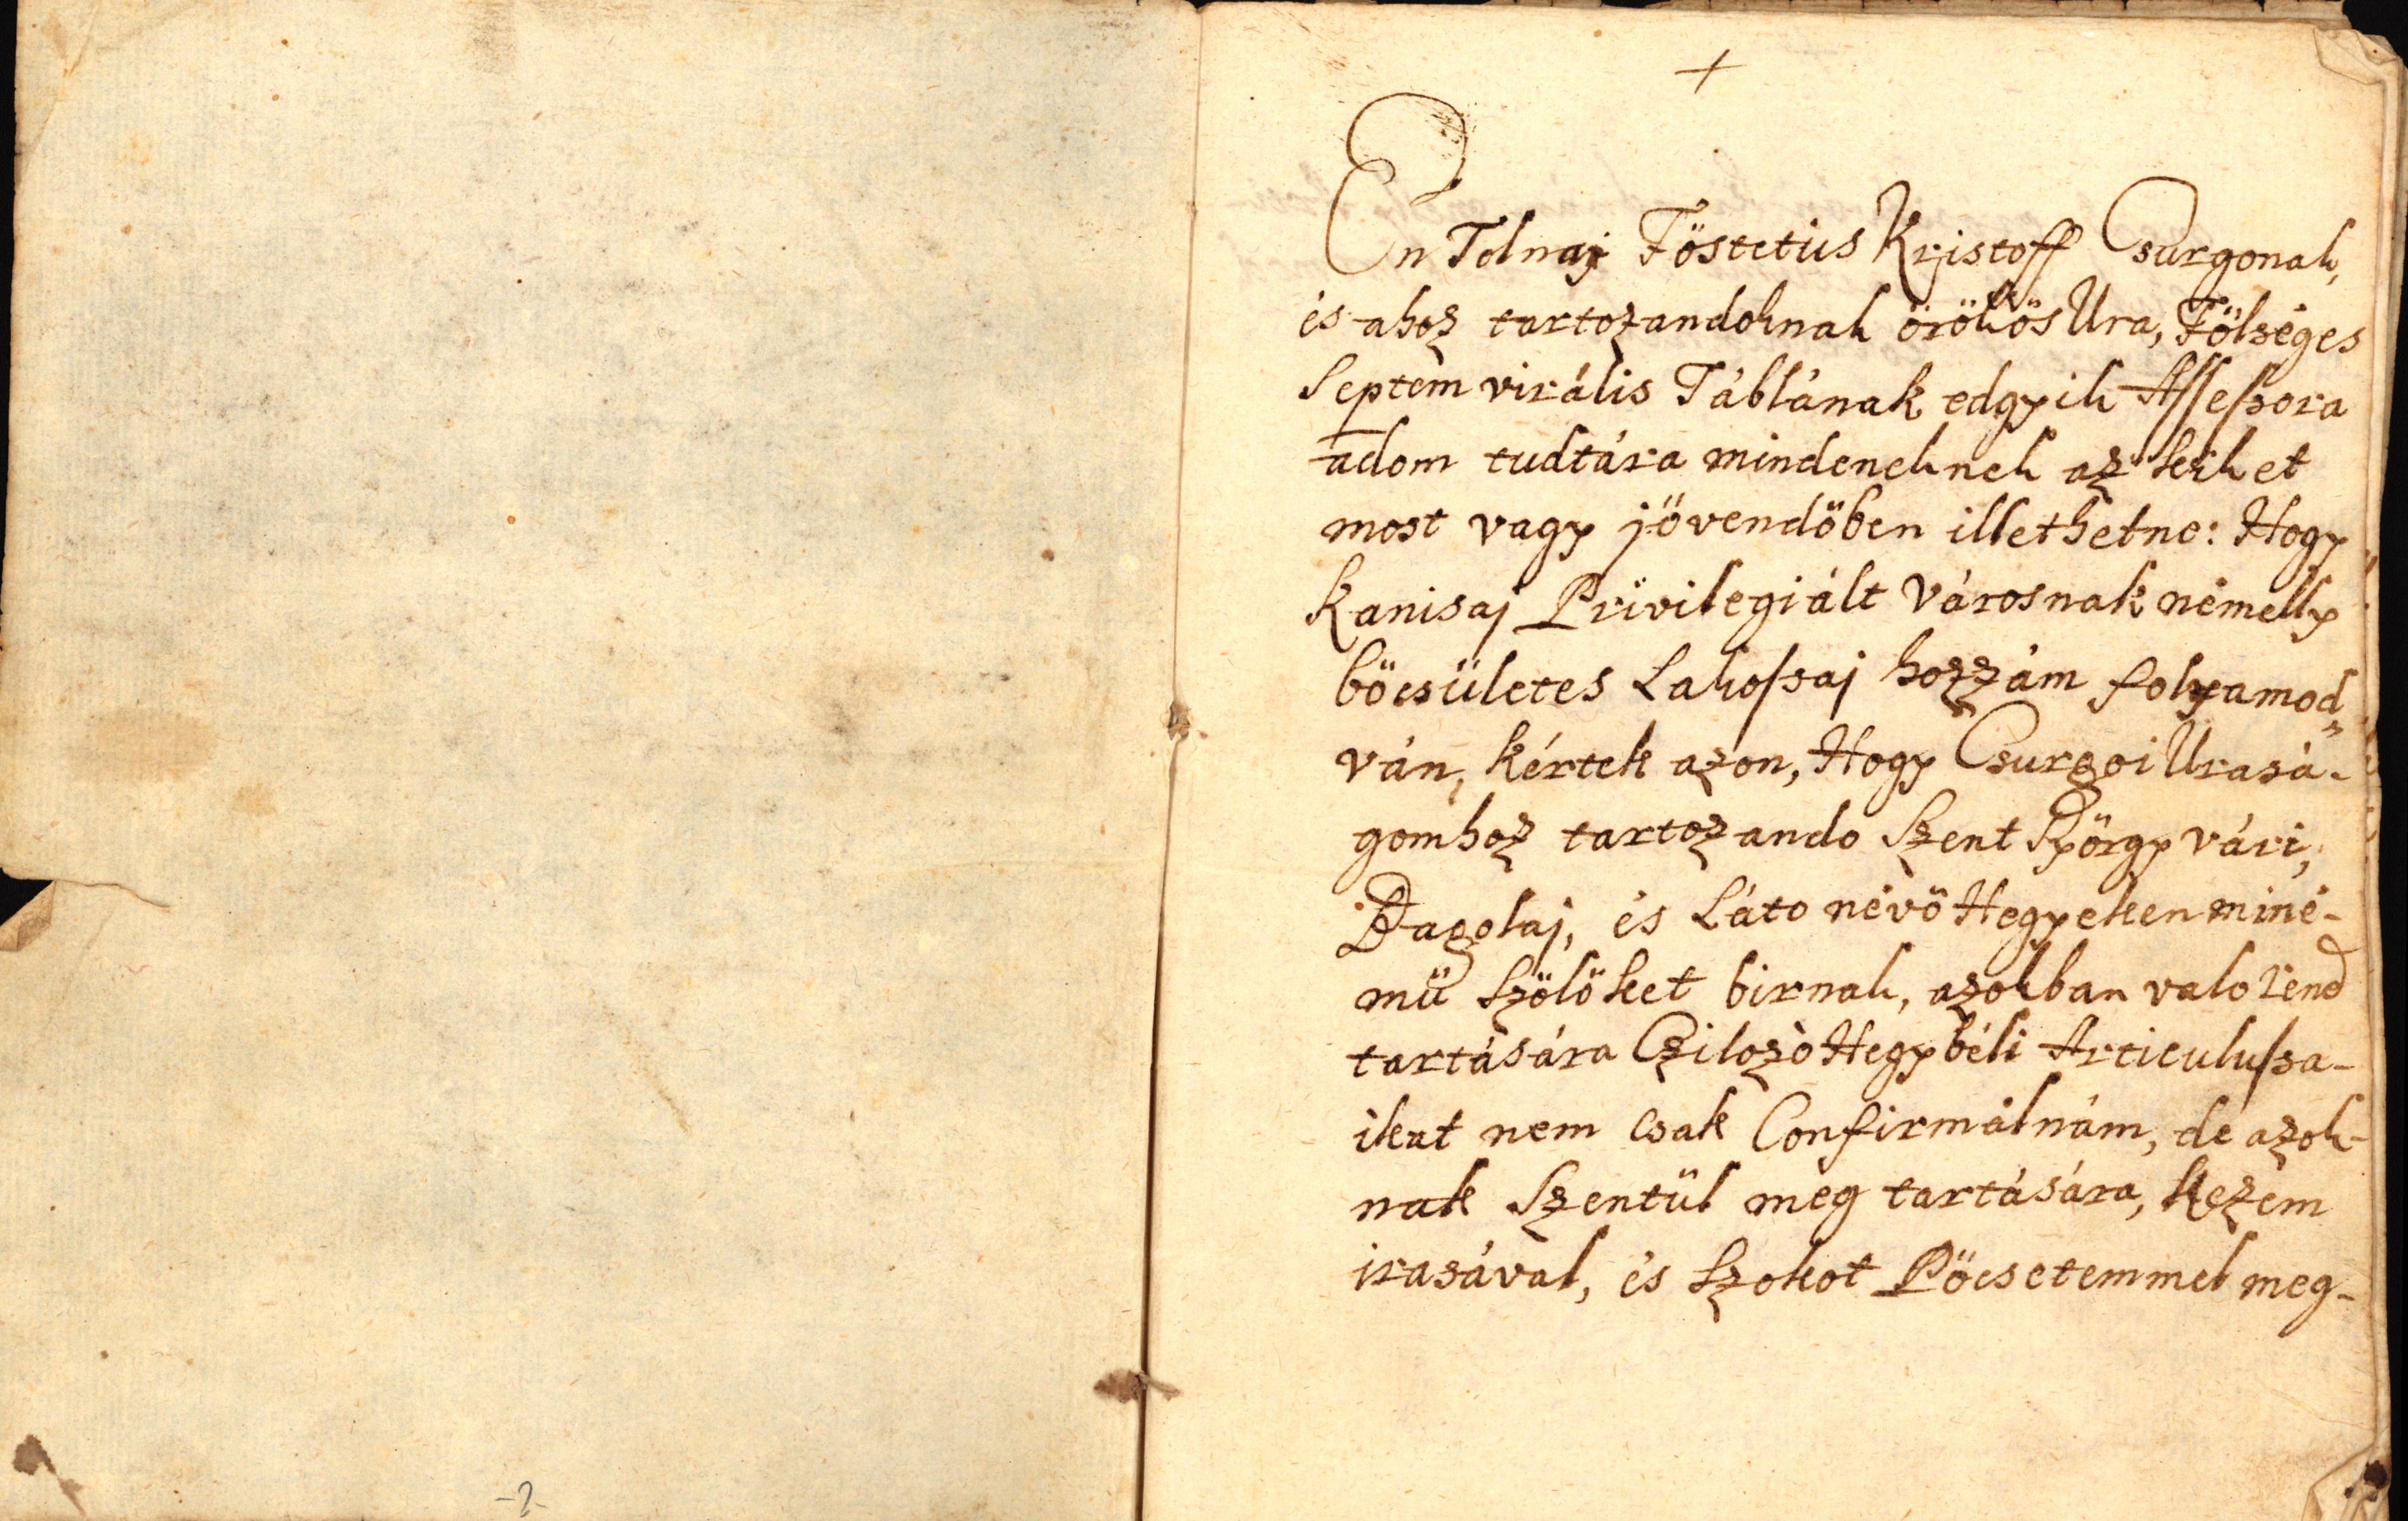 +
En Tolnaj Föstetüs Kristoff Csurgonak,
és ahoz tartozandoknak örökös Ura, Fölséges
Septem virális Táblának edgyik Assessora
adom tudtára mindeneknek az kiket
most vagy jövendöben illethetne: Hogy
Kanisaj Privilegiált Városnak némelly
böcsületes Lakossaj hozzám folyamod„
ván, kértek azon, Hogy Csurgoi Urasá-
gomhoz tartozando Szent Györgyvári,
Bagolaj, és Láto névö Hegyeken miné-
mü Szölöket birnak, azokban valo rend
tartására Czilozò Hegybéli Articulussa-
ikat nem csak Confirmálnám, de azok-
nak Szentül meg tartására, kezem
irasával, és Szokot Pöcsetemmel meg-
-2-